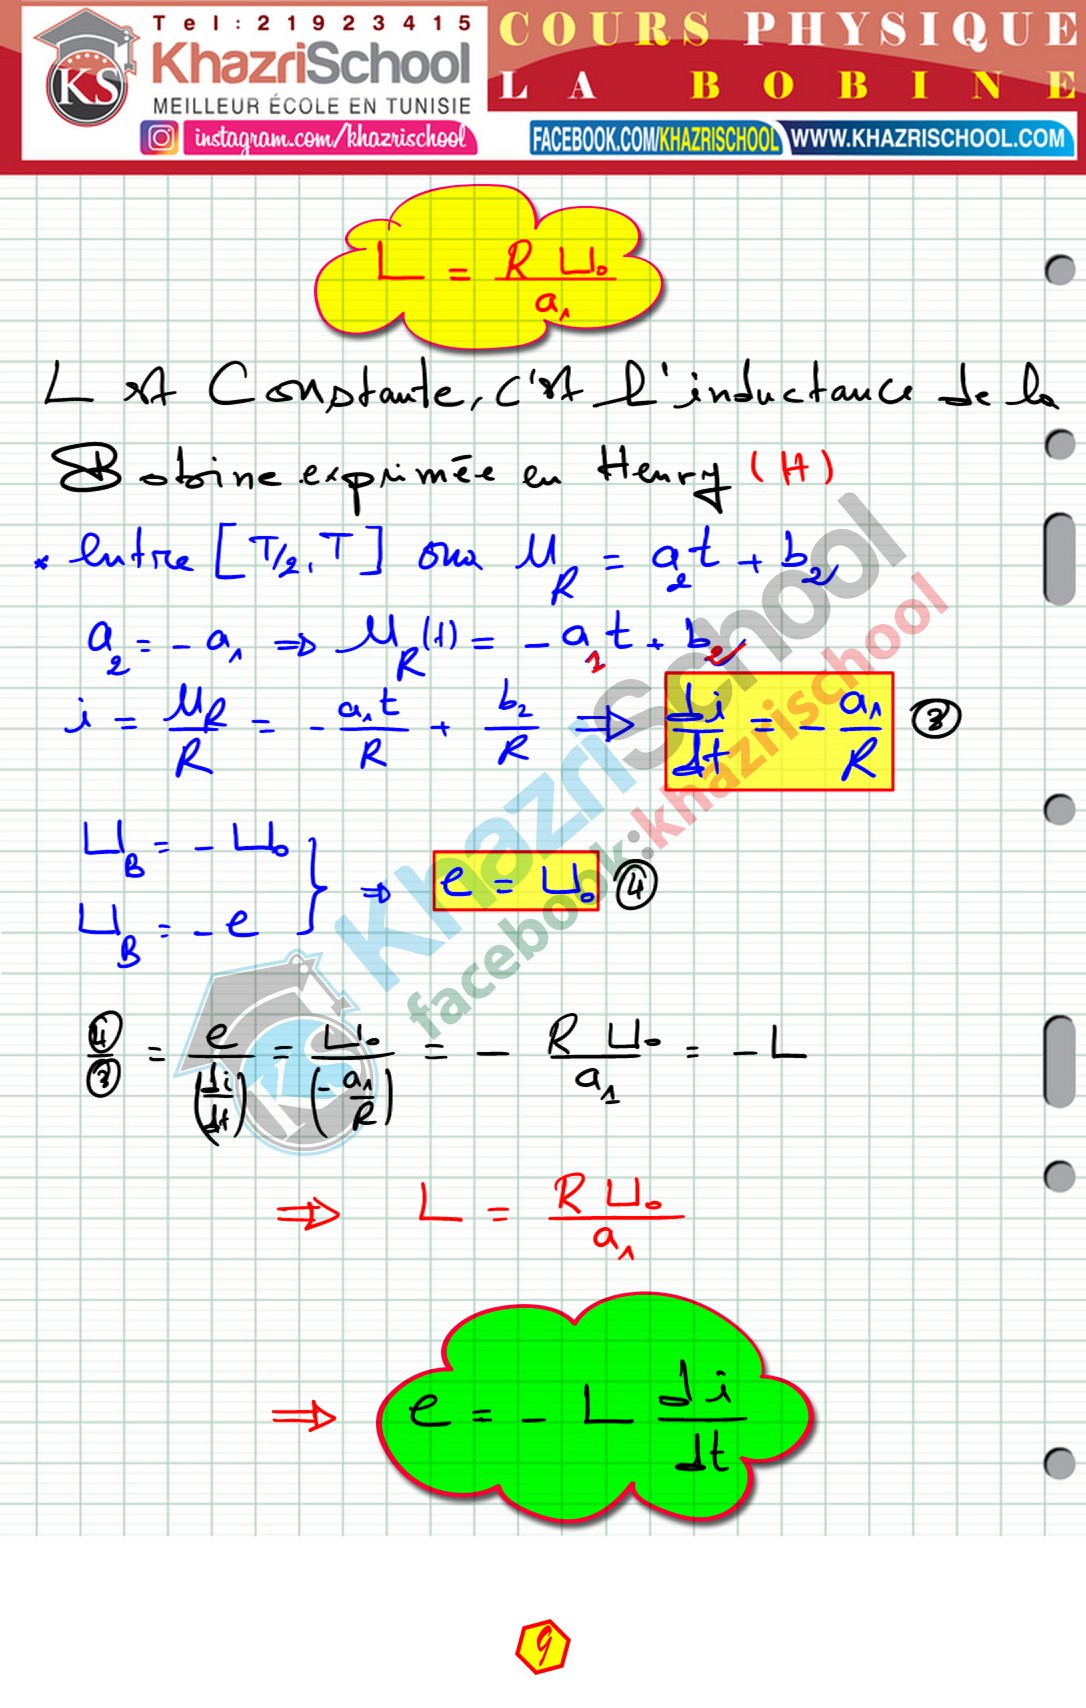 Tel: 21923415
KhazriSchool
MEILLEUR ÉCOLE EN TUNISIE
instagram.com/khazrischool
COURS PHYSIQUE
LA BOBINE
FACEBOOK.COM/KHAZRISCHOOL
WWW.KHAZRISCHOOL.COM
KS
L = R U₀ / a₁
L est Constante, c'est l'inductance de la
Bobine exprimée en Henry (H)
* entre [T/2, T] ona u_R = a₂t + b₂
a₂ = - a₁ ⇒ u_R(t) = - a₁t + b₂
i = u_R/R = - a₁t/R + b₂/R ⇒ di/dt = - a₁/R ③
U_B = - U₀
U_B = - e
} ⇒ e = U₀ ④
④/③ = e/(di/dt) = U₀/(- a₁/R) = - R U₀/a₁ = - L
⇒ L = R U₀ / a₁
⇒ e = - L di/dt
KhazriSchool
facebook:khazrischool
KS
9